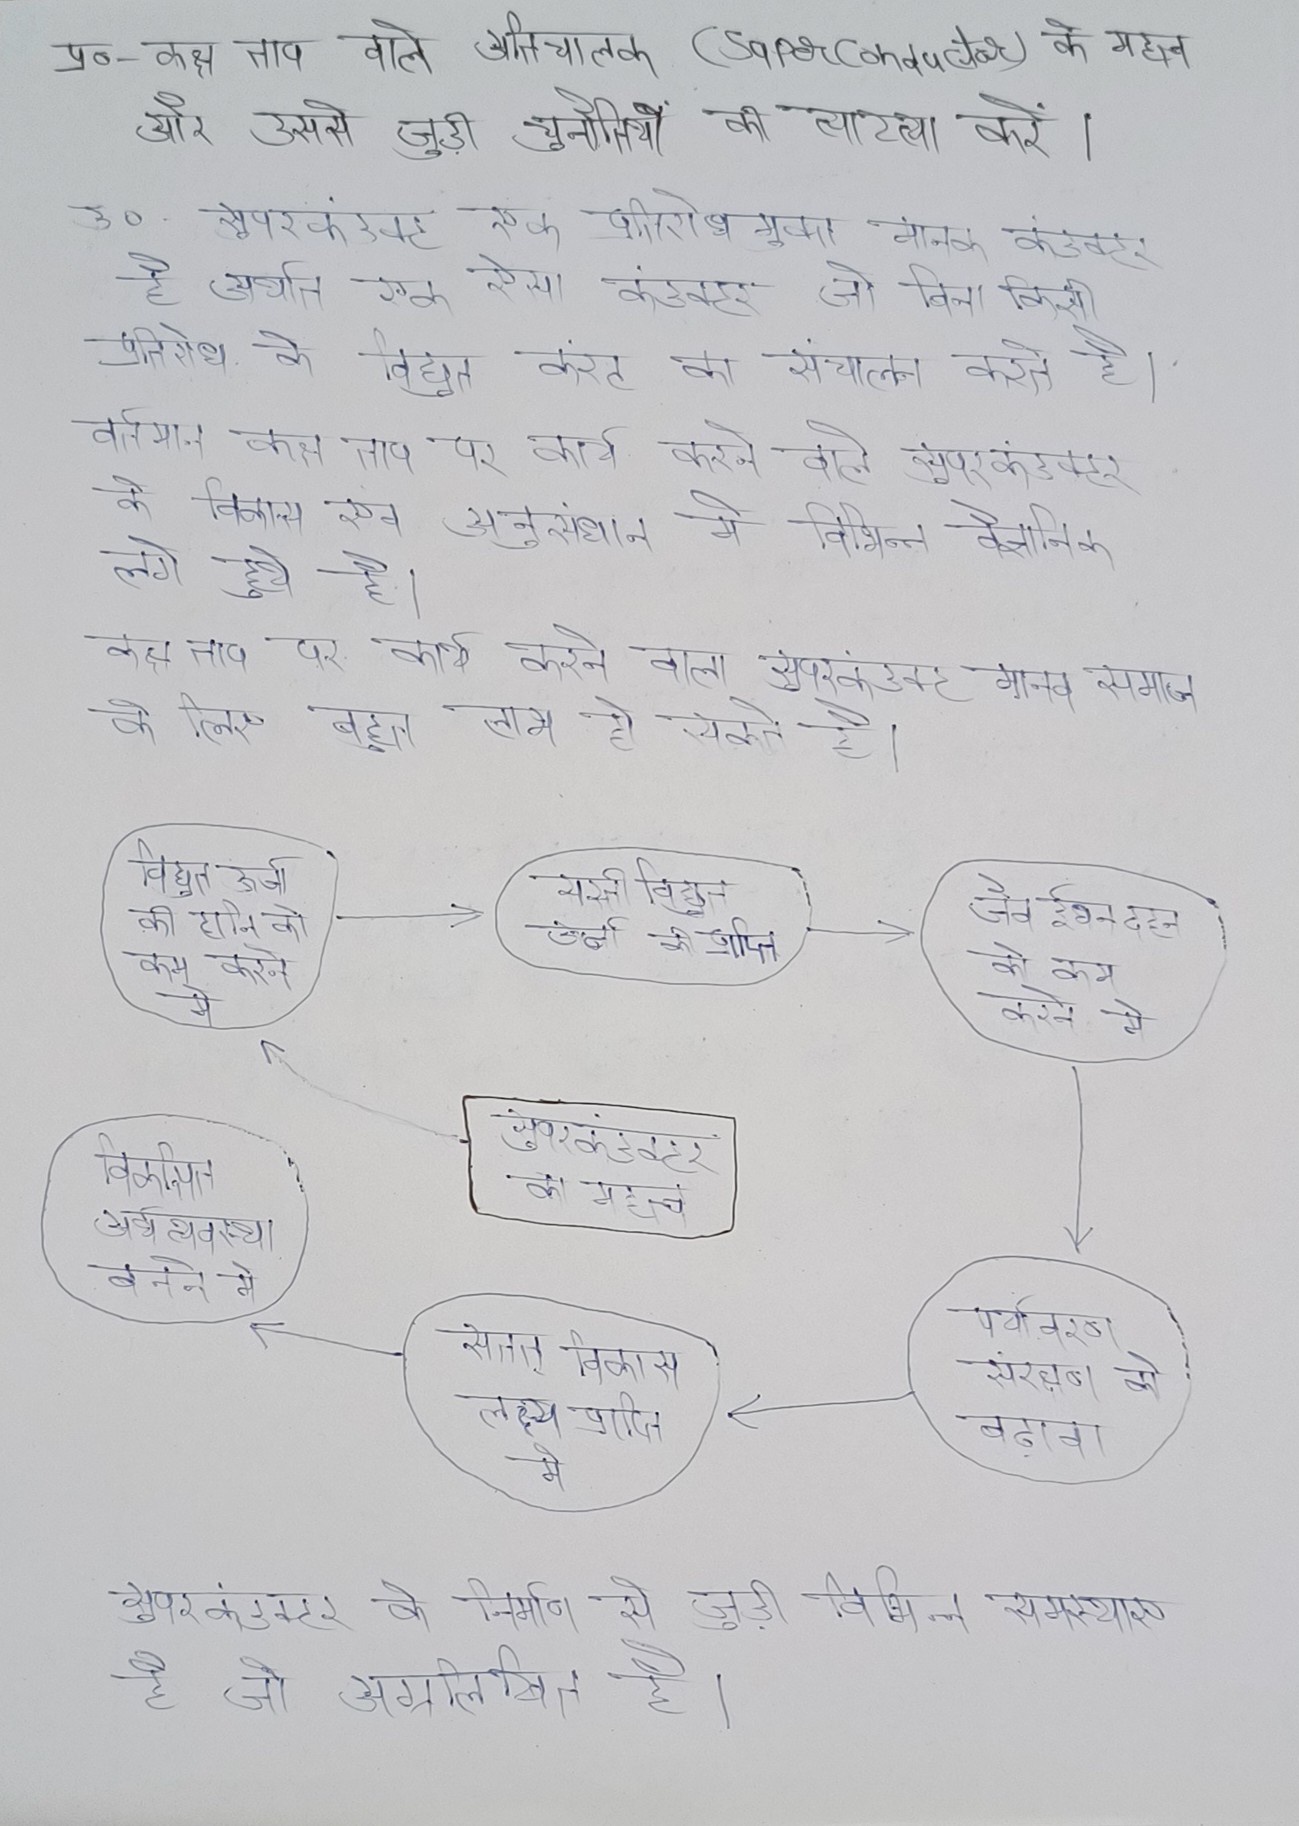 प्र०- कक्ष ताप वाले अतिचालक (Superconductor) के महत्व
और उससे जुड़ी चुनौतियों की व्याख्या करें।
उ०. सुपरकंडक्ट एक प्रतिरोध मुक्त मानक कंडक्टर
है अर्थात एक ऐसा कंडक्टर जो बिना किसी
प्रतिरोध के विद्युत करंट का संचालन करते है।
वर्तमान कक्ष ताप पर कार्य करने वाले सुपरकंडक्टर
के विकास एंव अनुसंधान मे विभिन्न वैज्ञानिक
लगे हुये है।
कक्ष ताप पर कार्य करने वाला सुपरकंडक्ट मानव समाज
के लिए बहुत लाभ हो सकते है।
विद्युत ऊर्जा
की हानि को
कम करने
मे
सस्ती विद्युत
ऊर्जा की प्राप्ति
जैव ईंधन दहन
को कम
करने मे
सुपरकंडक्टर
का महत्व
विकसित
अर्थव्यवस्था
बनने मे
सतत् विकास
लक्ष्य प्राप्ति
मे
पर्यावरण
संरक्षण को
बढ़ावा
सुपरकंडक्टर के निर्माण से जुड़ी विभिन्न समस्याए
है जो अग्रलिखित है।